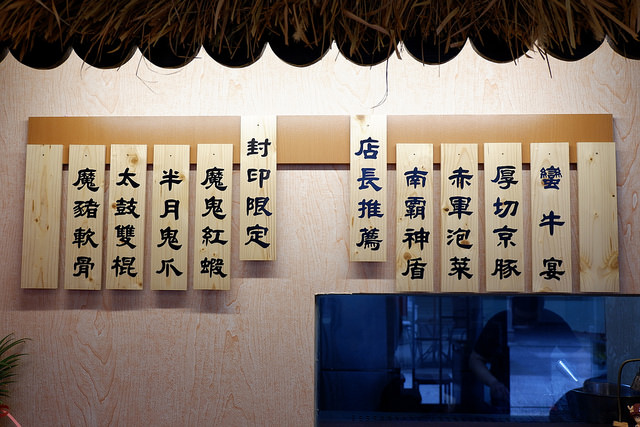 店長推薦
蠻牛宴
厚切京豚
赤軍泡菜
南霸神盾
封印限定
魔鬼紅蝦
半月鬼爪
太鼓雙棍
魔豬軟骨